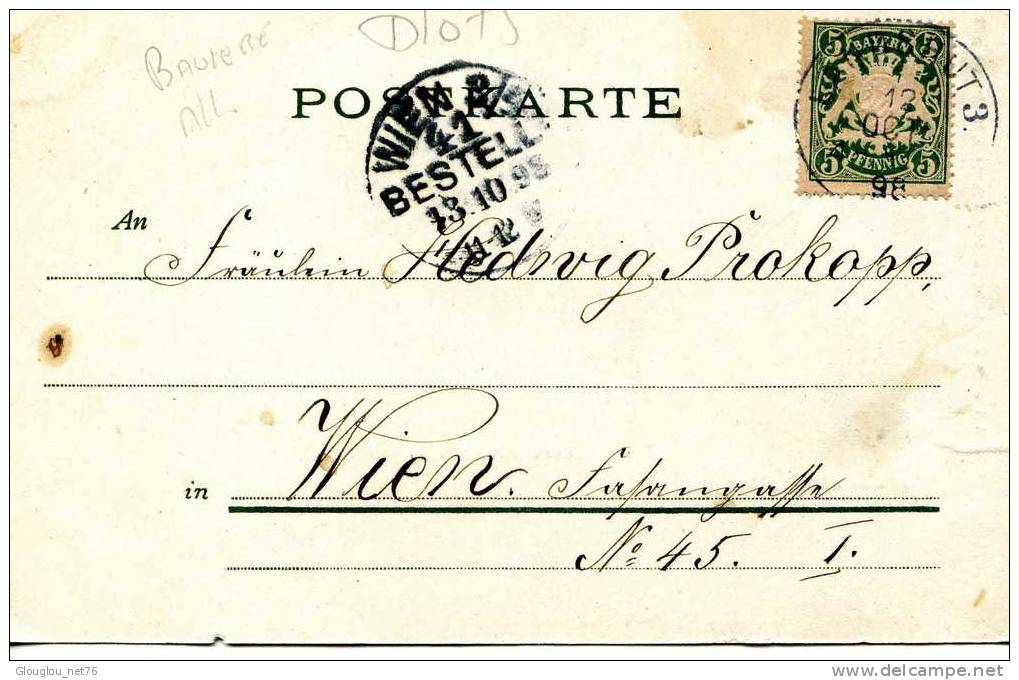 Bavière
All.
POSTKARTE
WIEN
BESTELLT
13.10.98
11-12
5 BAYERN 5
5 PFENNIG 5
12
OCT
98
3.
An Fräulein Hedwig Prokopp,
in Wien. Fasangasse
No 45. I.
Glouglou_net76
www.delcampe.net